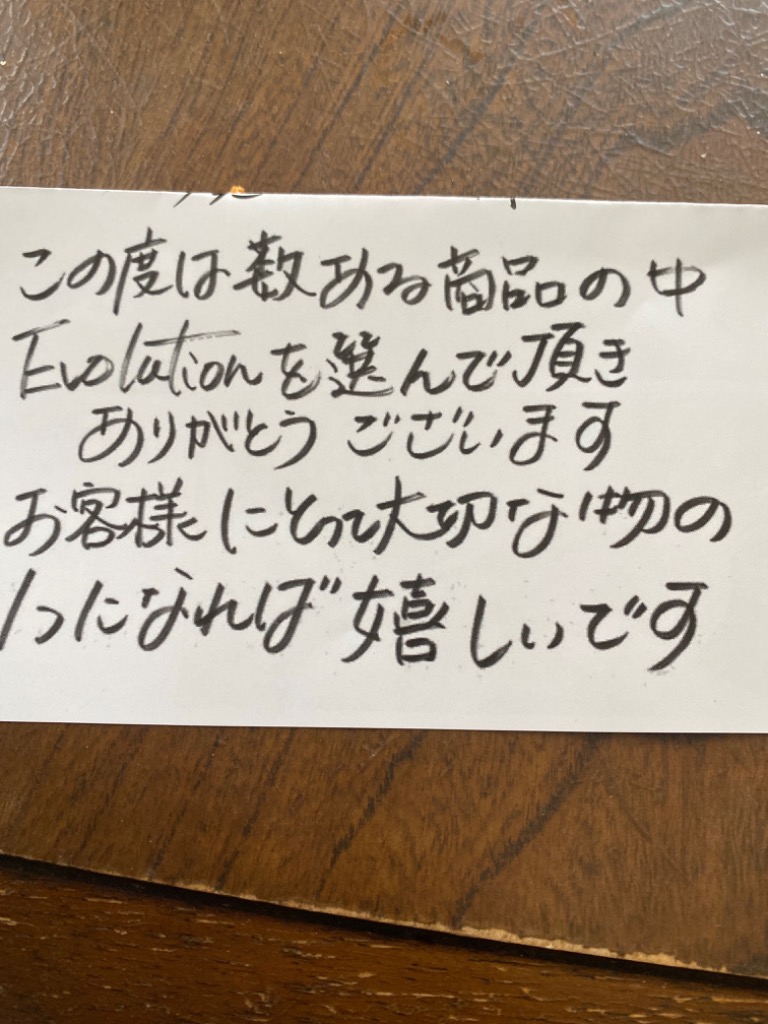 この度は数ある商品の中
Evolutionを選んで頂き
ありがとうございます
お客様にとって大切な物の
1つになれば嬉しいです